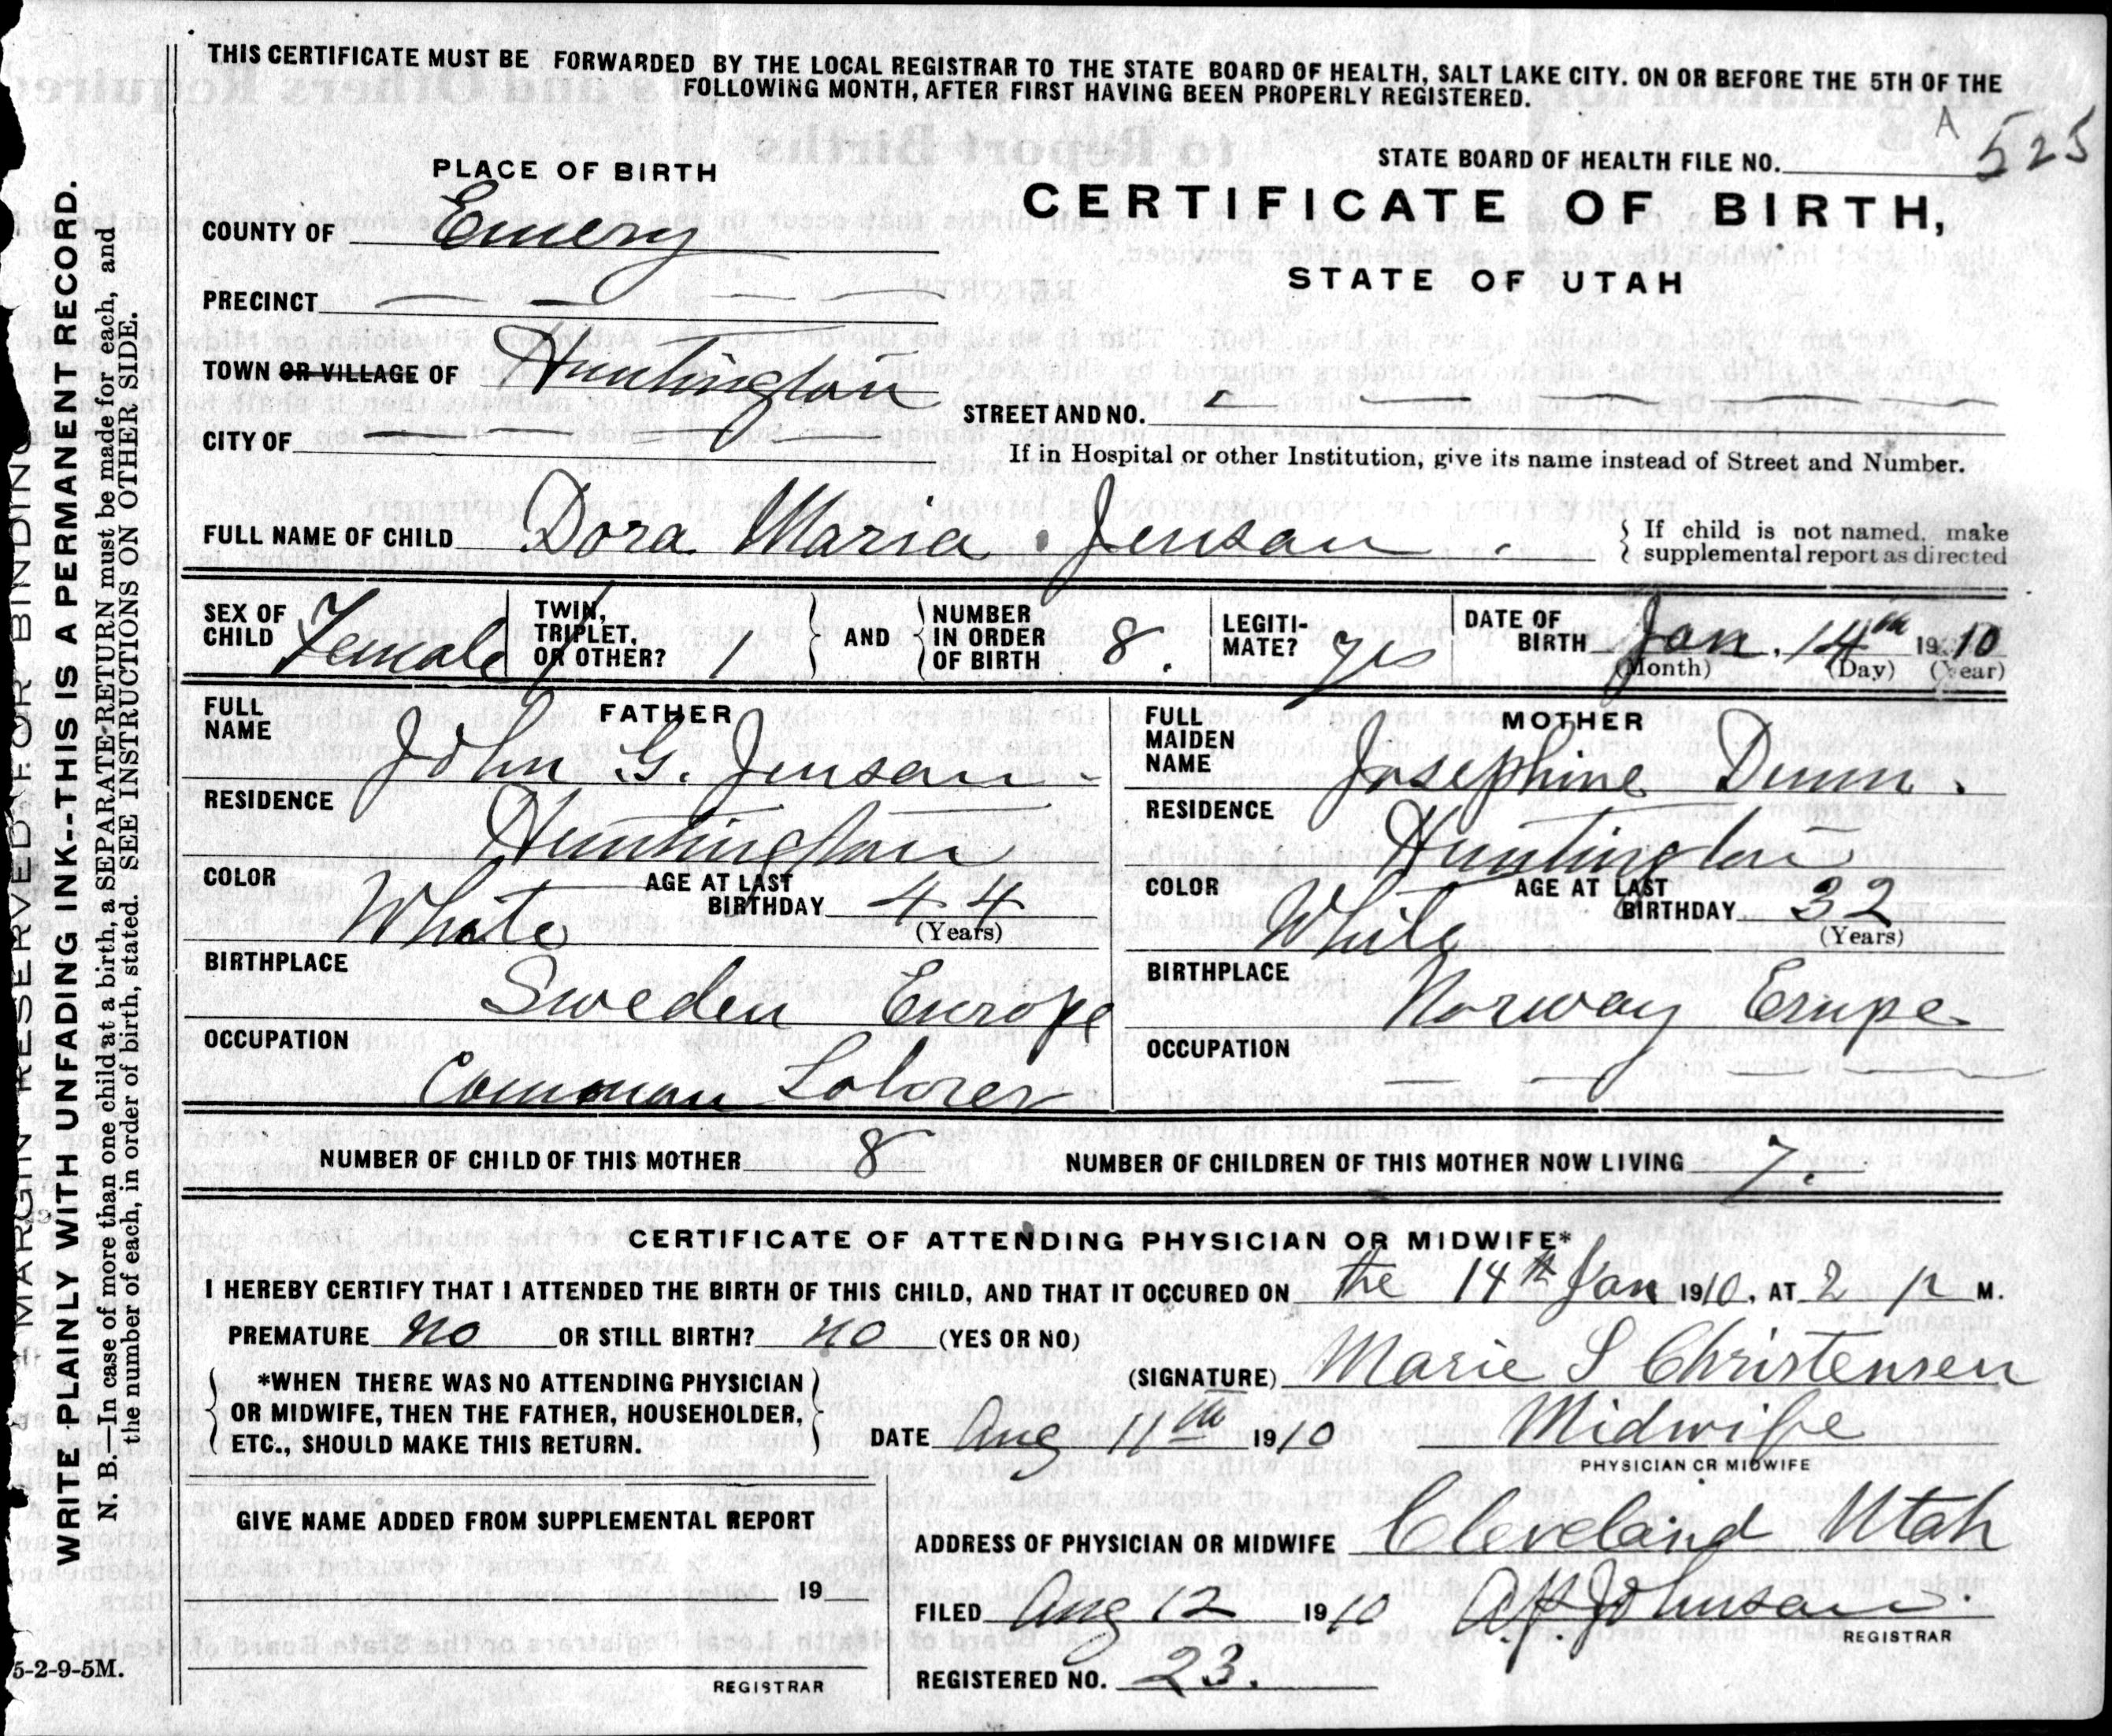 THIS CERTIFICATE MUST BE FORWARDED BY THE LOCAL REGISTRAR TO THE STATE BOARD OF HEALTH, SALT LAKE CITY. ON OR BEFORE THE 5TH OF THE
FOLLOWING MONTH, AFTER FIRST HAVING BEEN PROPERLY REGISTERED.
A 525
STATE BOARD OF HEALTH FILE NO.
PLACE OF BIRTH
CERTIFICATE OF BIRTH,
STATE OF UTAH
COUNTY OF Emery
PRECINCT — — — —
TOWN OR VILLAGE OF Huntington
STREET AND NO. - — — — —
CITY OF — — — —
If in Hospital or other Institution, give its name instead of Street and Number.
FULL NAME OF CHILD Dora Maria Jensan.
If child is not named, make
supplemental report as directed
SEX OF CHILD Female
TWIN, TRIPLET, OR OTHER? 1
AND
NUMBER IN ORDER OF BIRTH 8.
LEGITIMATE? yes
DATE OF BIRTH Jan. 14th 1910
(Month) (Day) (Year)
FATHER
FULL NAME John G. Jensan
RESIDENCE Huntington
COLOR White AGE AT LAST BIRTHDAY 44
(Years)
BIRTHPLACE Sweden Europe
OCCUPATION Comman Laborer
MOTHER
FULL MAIDEN NAME Josephine Dunn.
RESIDENCE Huntington
COLOR White AGE AT LAST BIRTHDAY 32
(Years)
BIRTHPLACE Norway Erupe
OCCUPATION — — — —
NUMBER OF CHILD OF THIS MOTHER 8 NUMBER OF CHILDREN OF THIS MOTHER NOW LIVING 7.
CERTIFICATE OF ATTENDING PHYSICIAN OR MIDWIFE*
I HEREBY CERTIFY THAT I ATTENDED THE BIRTH OF THIS CHILD, AND THAT IT OCCURED ON the 14th Jan 1910, AT 2 P M.
PREMATURE no OR STILL BIRTH? no (YES OR NO)
*WHEN THERE WAS NO ATTENDING PHYSICIAN
OR MIDWIFE, THEN THE FATHER, HOUSEHOLDER,
ETC., SHOULD MAKE THIS RETURN.
(SIGNATURE) Marie S Christensen
DATE Aug 11th 1910 Midwife
PHYSICIAN OR MIDWIFE
GIVE NAME ADDED FROM SUPPLEMENTAL REPORT
19
REGISTRAR
ADDRESS OF PHYSICIAN OR MIDWIFE Cleveland Utah
FILED Aug 12 1910 Johnsan.
REGISTRAR
REGISTERED NO. 23.
MARGIN RESERVED FOR BINDING
WRITE PLAINLY WITH UNFADING INK--THIS IS A PERMANENT RECORD.
N. B.—In case of more than one child at a birth, a SEPARATE RETURN must be made for each, and
the number of each, in order of birth, stated. SEE INSTRUCTIONS ON OTHER SIDE.
5-2-9-5M.